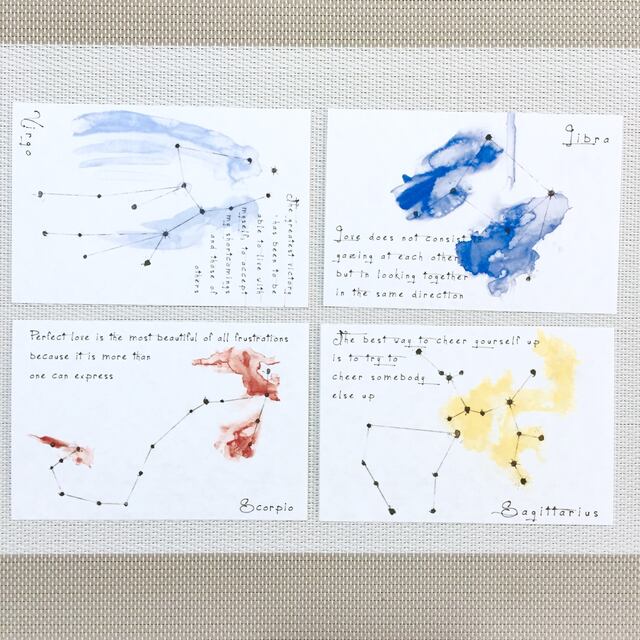 Virgo
The greatest victory
has been to be
able to live with
myself, to accept
my shortcomings
and those of
others
Libra
Love does not consist
gazing at each other
but in looking together
in the same direction
Perfect love is the most beautiful of all frustrations
because it is more than
one can express
Scorpio
The best way to cheer yourself up
is to try to
cheer somebody
else up
Sagittarius